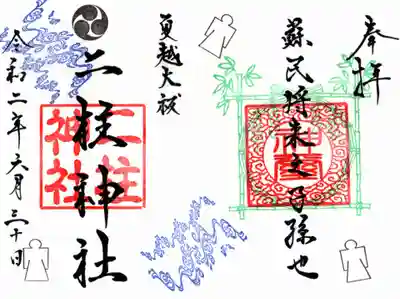 奉拝
蘇民将来之子孫也
夏越大祓
二柱神社
二柱
神社
令和二年六月三十日